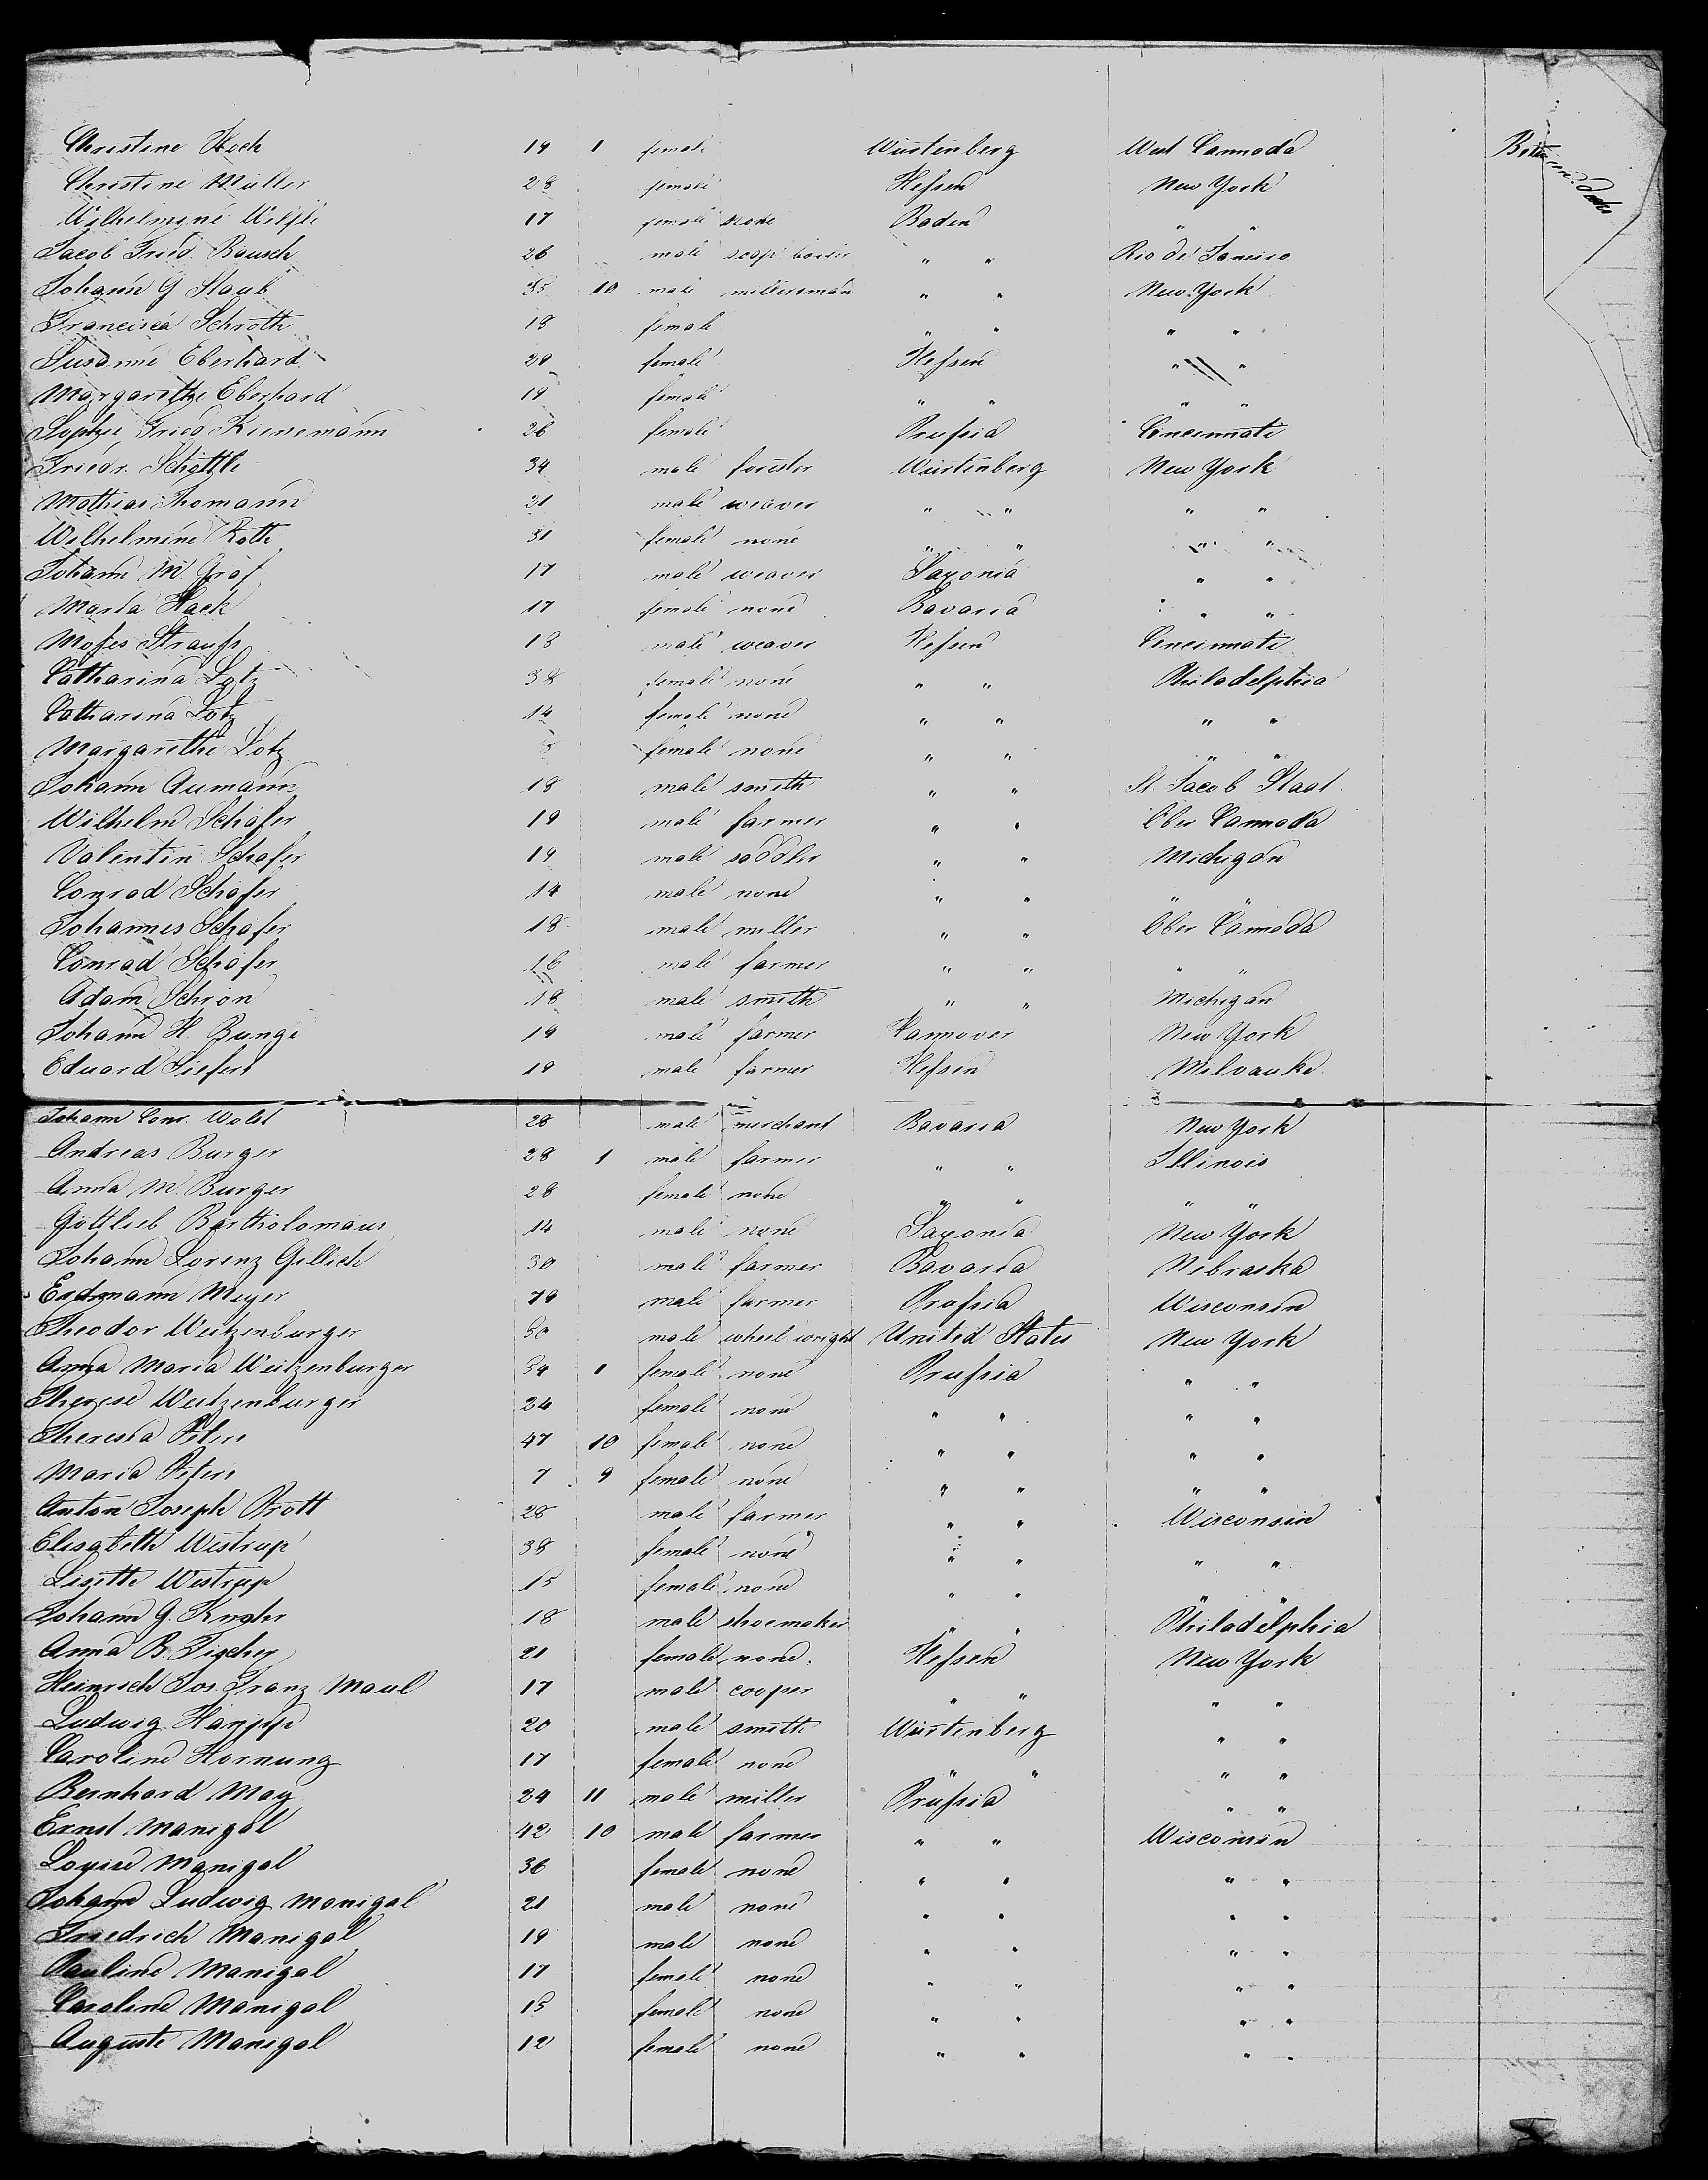 Christine Koch 19 1 female Würtenberg West Cannada Between decks
Christine Müller 28 female Hessen New York
Wilhelmine 17 female none Baden " "
Jacob Fried. Bausch 26 male soap boiler " " Rio de Janeiro
Johann G Staub 35 10 male millersman " " New York
Francisca Schroth 18 female " " " "
Susanne Eberhard 28 female Hessen " "
Margarethe Eberhard 19 female " " " "
Sophie Fried. Kienemann 26 female Prussia Cincinnati
Friedr. Schöttle 34 male forester Würtenberg New York
Mathias Thomann 21 male weaver " " " "
Wilhelmine Roth 31 female none " " " "
Johann M Graf 17 male weaver Saxonia " "
Maria Hack 17 female none Bavaria " "
Moses Strauss 13 male weaver Hessen Cincinnati
Catharina Lotz 38 female none " " Philadelphia
Catharina Lotz 14 female none " " " "
Margarethe Lotz 8 female none " " " "
Johann Aumann 18 male smith " " St. Jacob Staat
Wilhelm Schäfer 19 male farmer " " Ober Cannada
Valentin Schäfer 19 male saddler " " Michigan
Conrad Schäfer 14 male none " " " "
Johannes Schäfer 18 male miller " " Ober Cannada
Conrad Schäfer 16 male farmer " " " "
Adam Schön 18 male smith " " Michigan
Johann H. Bunge 19 male farmer Hannover New York
Eduard Siefert 19 male farmer Hessen Milvauke
Johann Conr. Wold 28 male merchant Bavaria New York
Andreas Burger 28 1 male farmer " " Illinois
Anna M. Burger 28 female none " " " "
Gottlieb Bartholomaus 14 male none Saxonia New York
Johann Lorenz Gillich 30 male farmer Bavaria Nebraska
Erdmann Meyer 19 male farmer Prussia Wisconsin
Theodor Weitzenburger 30 male wheel-wright United States New York
Anna Maria Weitzenburger 34 1 female none Prussia " "
Therese Weitzenburger 24 female none " " " "
Theresia Peters 47 10 female none " " " "
Maria Peters 7 9 female none " " " "
Anton Joseph Prott 28 male farmer " " Wisconsin
Elisabeth Westrup 38 female none " " " "
Lisette Westrup 15 female none " " " "
Johann G. 18 male shoemaker " " Philadelphia
Anna B. Fischer 21 female none. Hessen New York
Heinrich Jos. Franz Maul 17 male cooper " " " "
Ludwig 20 male smith Würtenberg " "
Caroline Hornung 17 female none " " " "
Bernhard May 24 11 male miller Prussia " "
Ernst Manigal 42 10 male farmer " " Wisconsin
Louise Manigal 36 female none " " " "
Johann Ludwig Manigal 21 male none " " " "
Friedrich Manigal 19 male none " " " "
Pauline Manigal 17 female none " " " "
Caroline Manigal 15 female none " " " "
Auguste Manigal 12 female none " " " "